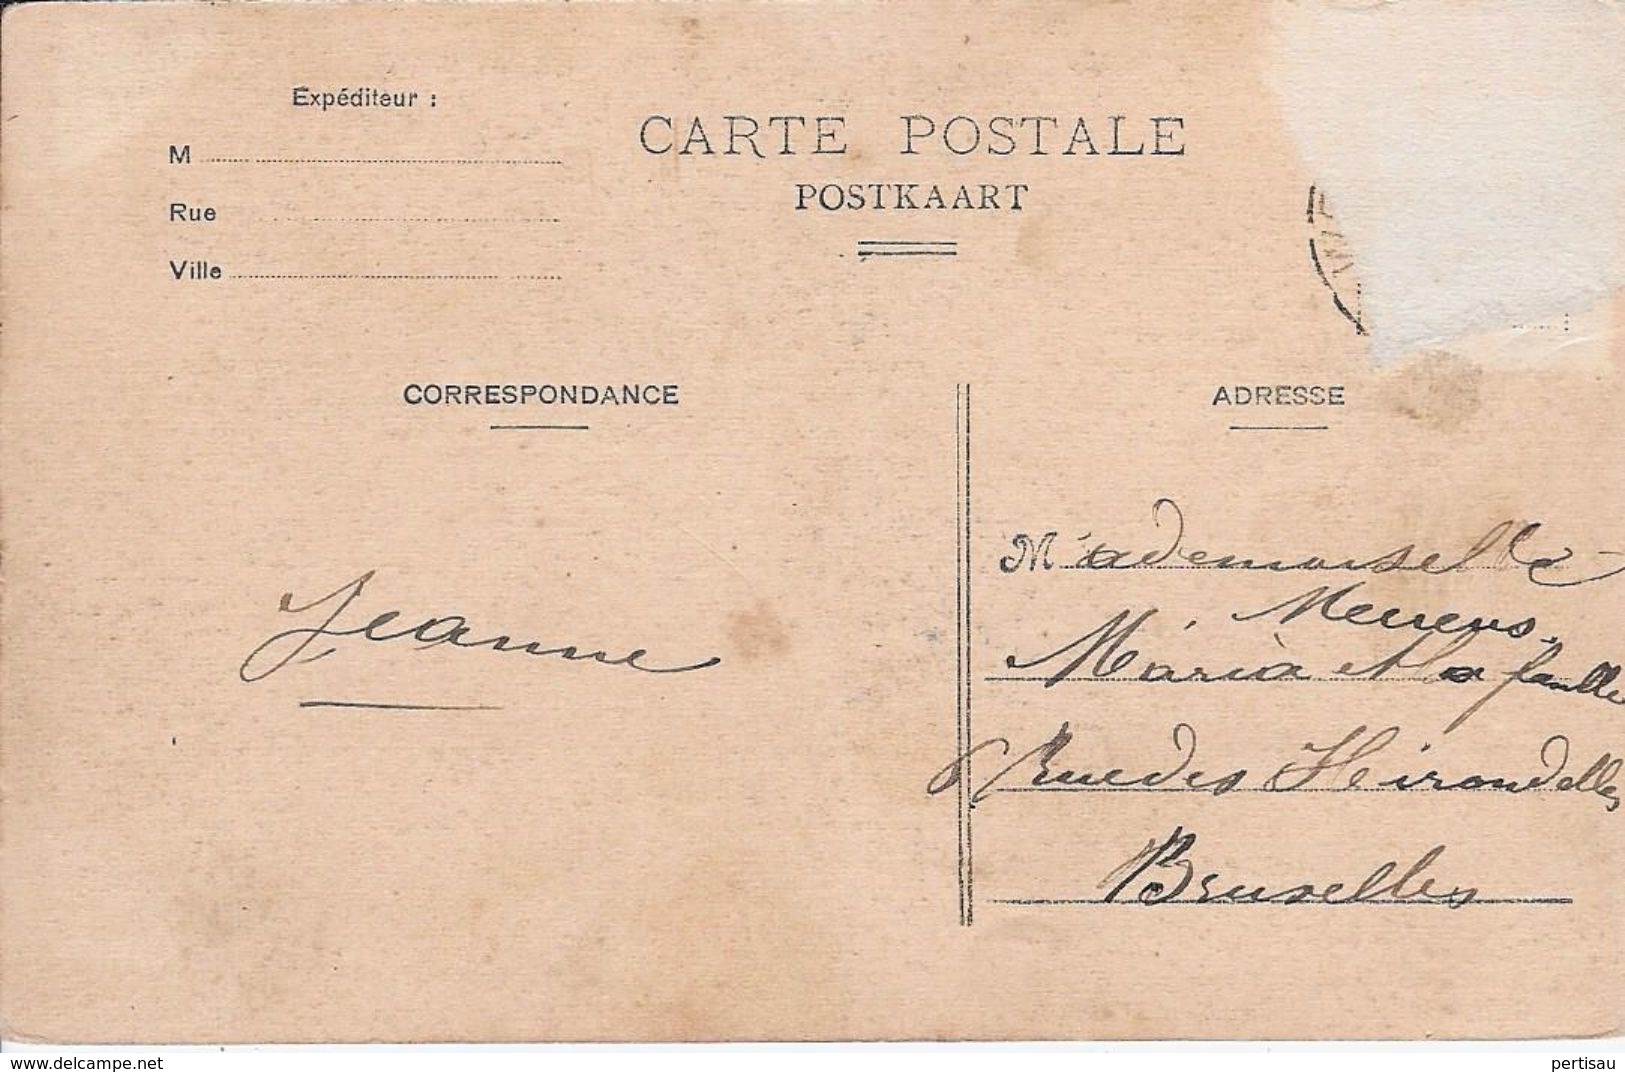 Expéditeur :
M
Rue
Ville
CARTE POSTALE
POSTKAART
CORRESPONDANCE
ADRESSE
Jeanne
Mademoiselle
Meurens.
Maria & La famille
6 Rue des Hirondelles
Bruxelles
delcampe.net
pertisau